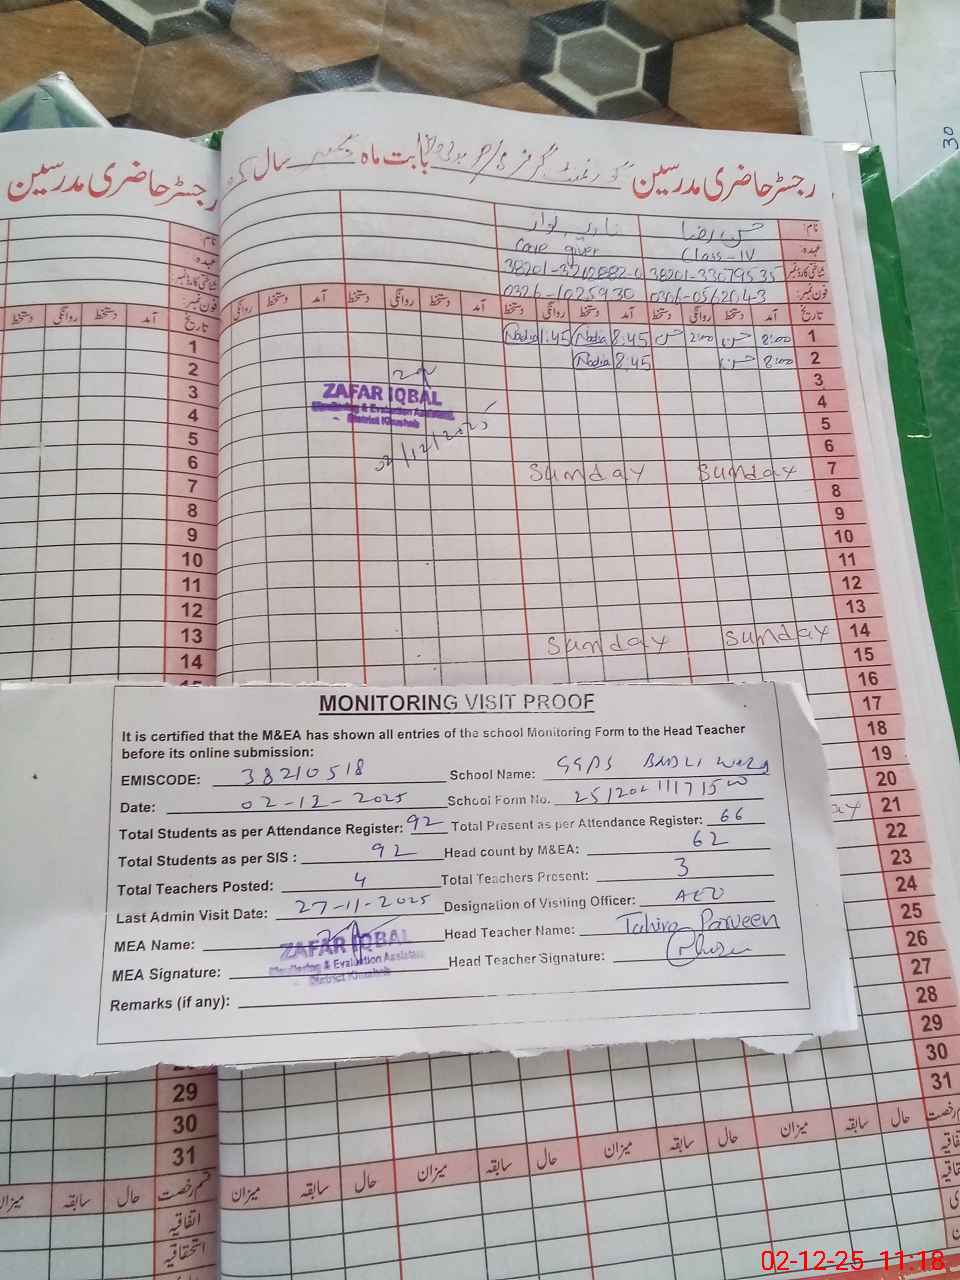 رجسٹر حاضری مدرسین
رجسٹر حاضری مدرسین بابت ماہ دسمبر سال
نام:
عہدہ:
شناختی کارڈ نمبر:
فون نمبر:
حسن رضا
Care giver Class-IV
38201-33079535
0326-1025930 0306-0562043
تاریخ آمد دستخط روانگی دستخط آمد دستخط روانگی دستخط آمد دستخط روانگی دستخط آمد دستخط روانگی
تاریخ آمد دستخط روانگی دستخط
1 8:00 حسن 2:00 حسن 8.45 Nadia 1.45 Nadia
2 8:00 حسن 8.45 Nadia
3
4
5
6
7 Sunday Sunday
8
9
10
11
12
13
14 Sunday Sunday
15
16
17
18
19
20
21
22
23
24
25
26
27
28
29
30
31
ZAFAR IQBAL
Monitoring & Evaluation Assistant
District Khushab
02/12/2025
1
2
3
4
5
6
7
8
9
10
11
12
13
14
15
MONITORING VISIT PROOF
It is certified that the M&EA has shown all entries of the school Monitoring Form to the Head Teacher
before its online submission:
EMISCODE: 38210518 School Name: GGPS
Date: 02-12-2025 School Form No.
Total Students as per Attendance Register: 92 Total Present as per Attendance Register: 66
Total Students as per SIS : 92 Head count by M&EA: 62
Total Teachers Posted: 4 Total Teachers Present: 3
Last Admin Visit Date: 27-11-2025 Designation of Visiting Officer: AEO
MEA Name: Head Teacher Name: Tahira Parveen
ZAFAR IQBAL
Monitoring & Evaluation Assistant
District Khushab
MEA Signature: Head Teacher Signature:
Remarks (if any):
29
30
31
قسم رخصت حال سابقہ میزان
اتفاقیہ
استحقاقیہ
حال سابقہ میزان حال سابقہ میزان حال سابقہ میزان حال سابقہ میزان
30
02-12-25 11:18